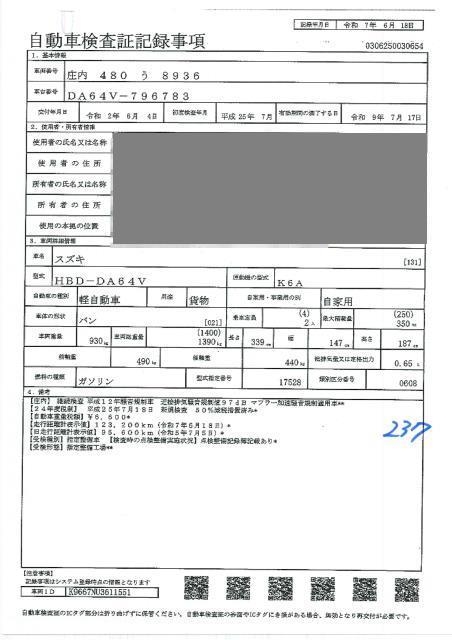 記録年月日 令和 7年 6月 18日
自動車検査証記録事項
0306250030654
1. 基本情報
車両番号 庄内 480 う 8936
車台番号 DA64V-796783
交付年月日 令和 2年 6月 4日 初度検査年月 平成 25年 7月 有効期間の満了する日 令和 9年 7月 17日
2. 使用者・所有者情報
使用者の氏名又は名称
使用者の住所
所有者の氏名又は名称
所有者の住所
使用の本拠の位置
3. 車両詳細情報
車名 スズキ [131]
型式 HBD-DA64V 原動機の型式 K6A
自動車の種別 軽自動車 用途 貨物 自家用・事業用の別 自家用
車体の形状 バン [021] 乗車定員 (4) 2人 最大積載量 (250) 350kg
車両重量 930kg 車両総重量 (1400) 1390kg 長さ 339cm 幅 147cm 高さ 187cm
前軸重 490kg 後軸重 440kg 総排気量又は定格出力 0.65L
燃料の種類 ガソリン 型式指定番号 17528 類別区分番号 0608
4. 備考
【庄内】 継続検査 平成12年騒音規制車 近接排気騒音規制値97dB マフラー加速騒音規制適用車**
【24年度税制】 平成25年7月18日 新規検査 50%減税措置済み*
【自動車重量税額】 ¥6,600*
【走行距離計表示値】 123,200km (令和7年6月18日)*
【旧走行距離計表示値】 95,600km (令和5年7月5日)*
【受検種別】 指定整備車 【検査時の点検整備実施状況】 点検整備記録簿記載あり*
【受検形態】 指定整備工場**
237
【注意事項】
記録事項はシステム登録時点の情報となります
車両ID K9667NU3611551
自動車検査証のICタグ部分は折り曲げずに保管ください。自動車検査証の券面やICタグにき損がある場合、無効となり再交付が必要です。